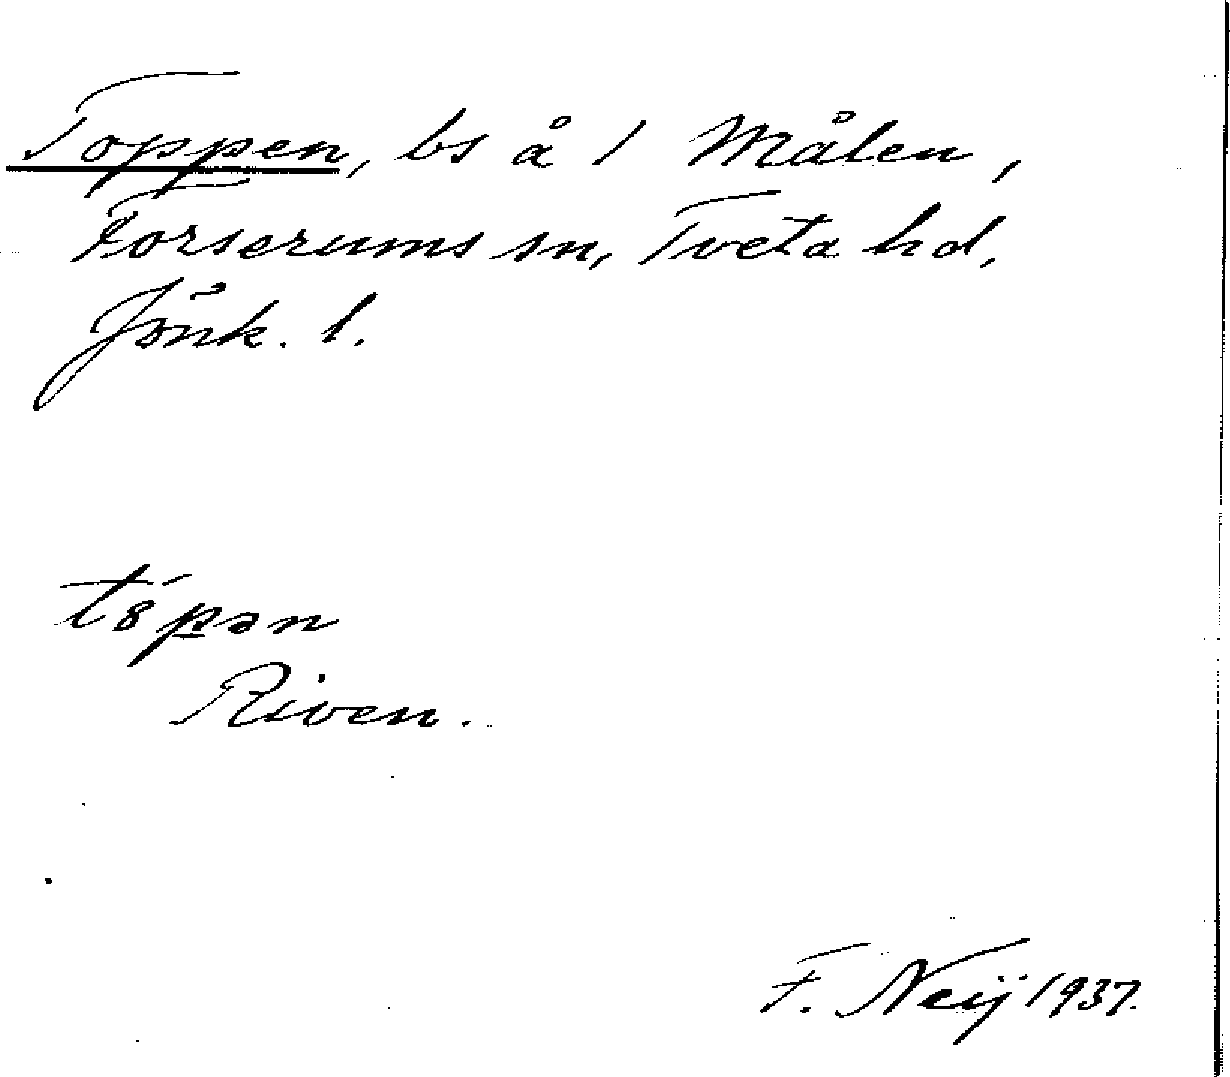 Toppen, bs å 1 Målen,
Forserums sn, Tveta hd,
Jönk. l.
tȣ́pən
Riven.
F. Neij 1937.